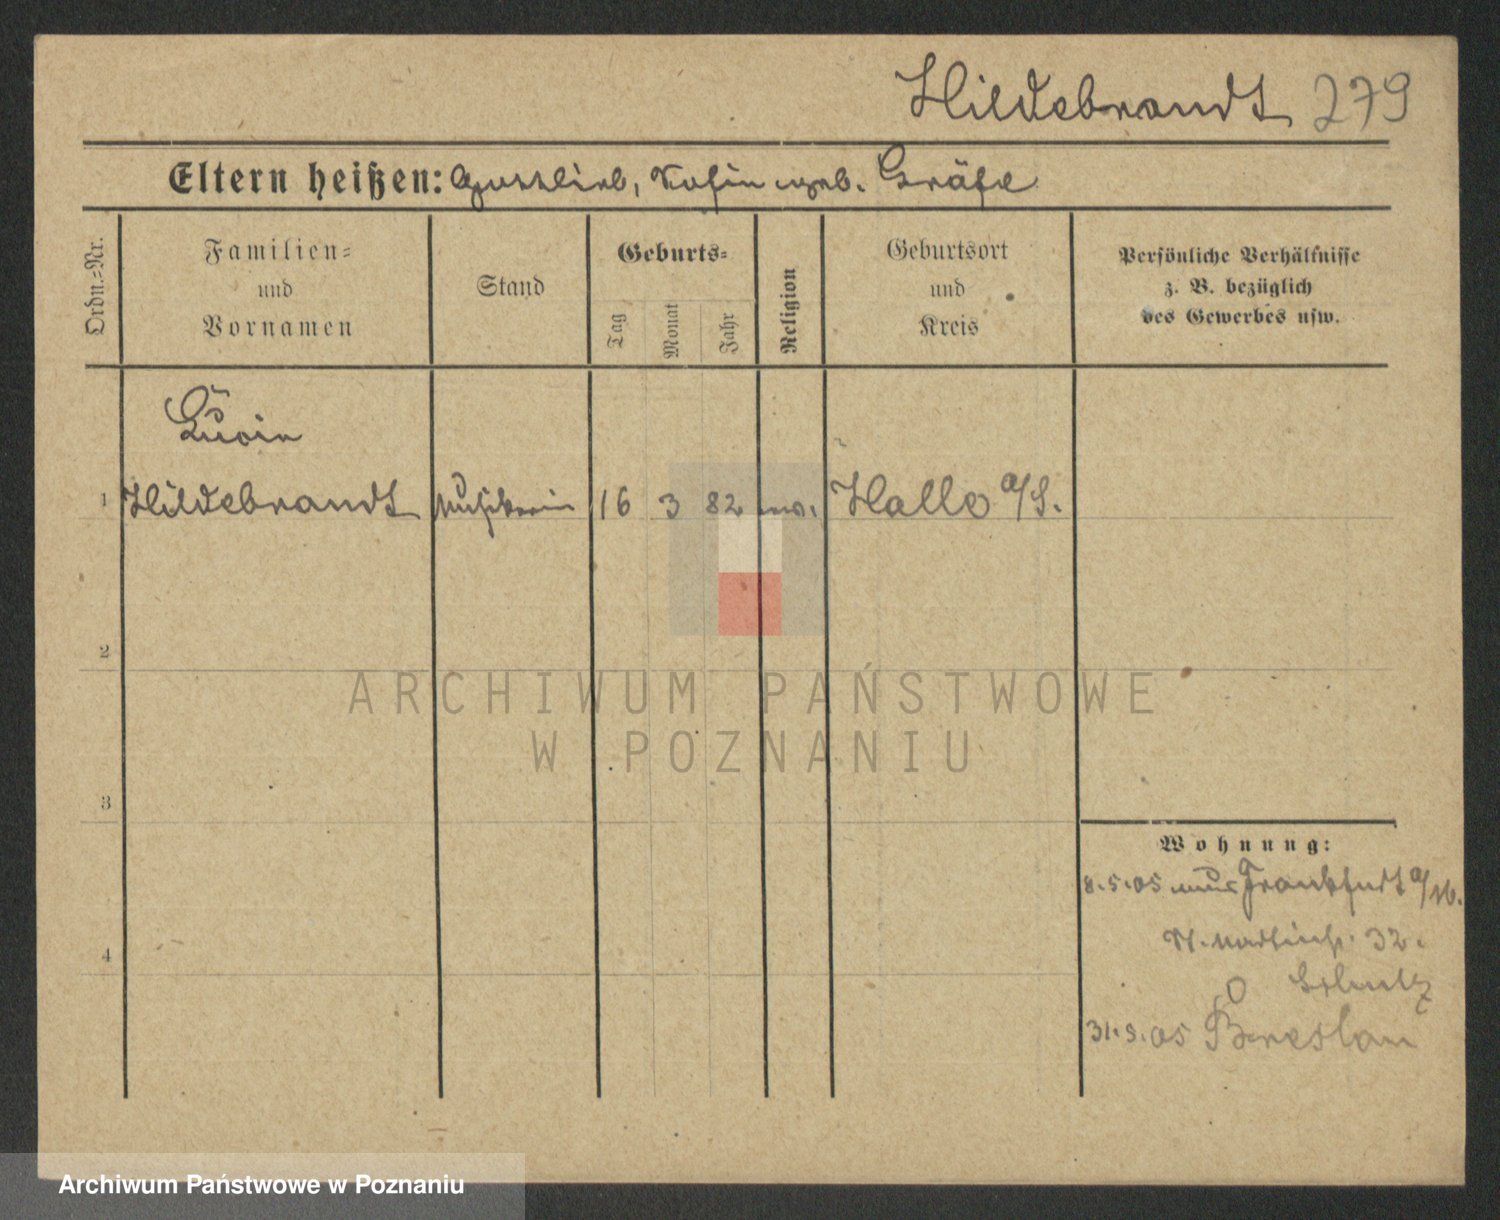 Hildebrandt 279
Eltern heißen: Gottlieb, Rosine geb. Gräfe
Ordn.=Nr.
Familien=
und
Vornamen
Stand
Geburts=
Tag
Monat
Jahr
Religion
Geburtsort
und
Kreis
Persönliche Verhältnisse
z. B. bezüglich
des Gewerbes usw.
1 Hildebrandt Musikerin 16 3 82 ev. Halle a/S.
2
ARCHIWUM PAŃSTWOWE
W POZNANIU
3
Wohnung:
8.5.05 aus Frankfurt a/M.
St. Martinstr. 32.
4
Schulz
31.8.05 Breslau
Archiwum Państwowe w Poznaniu